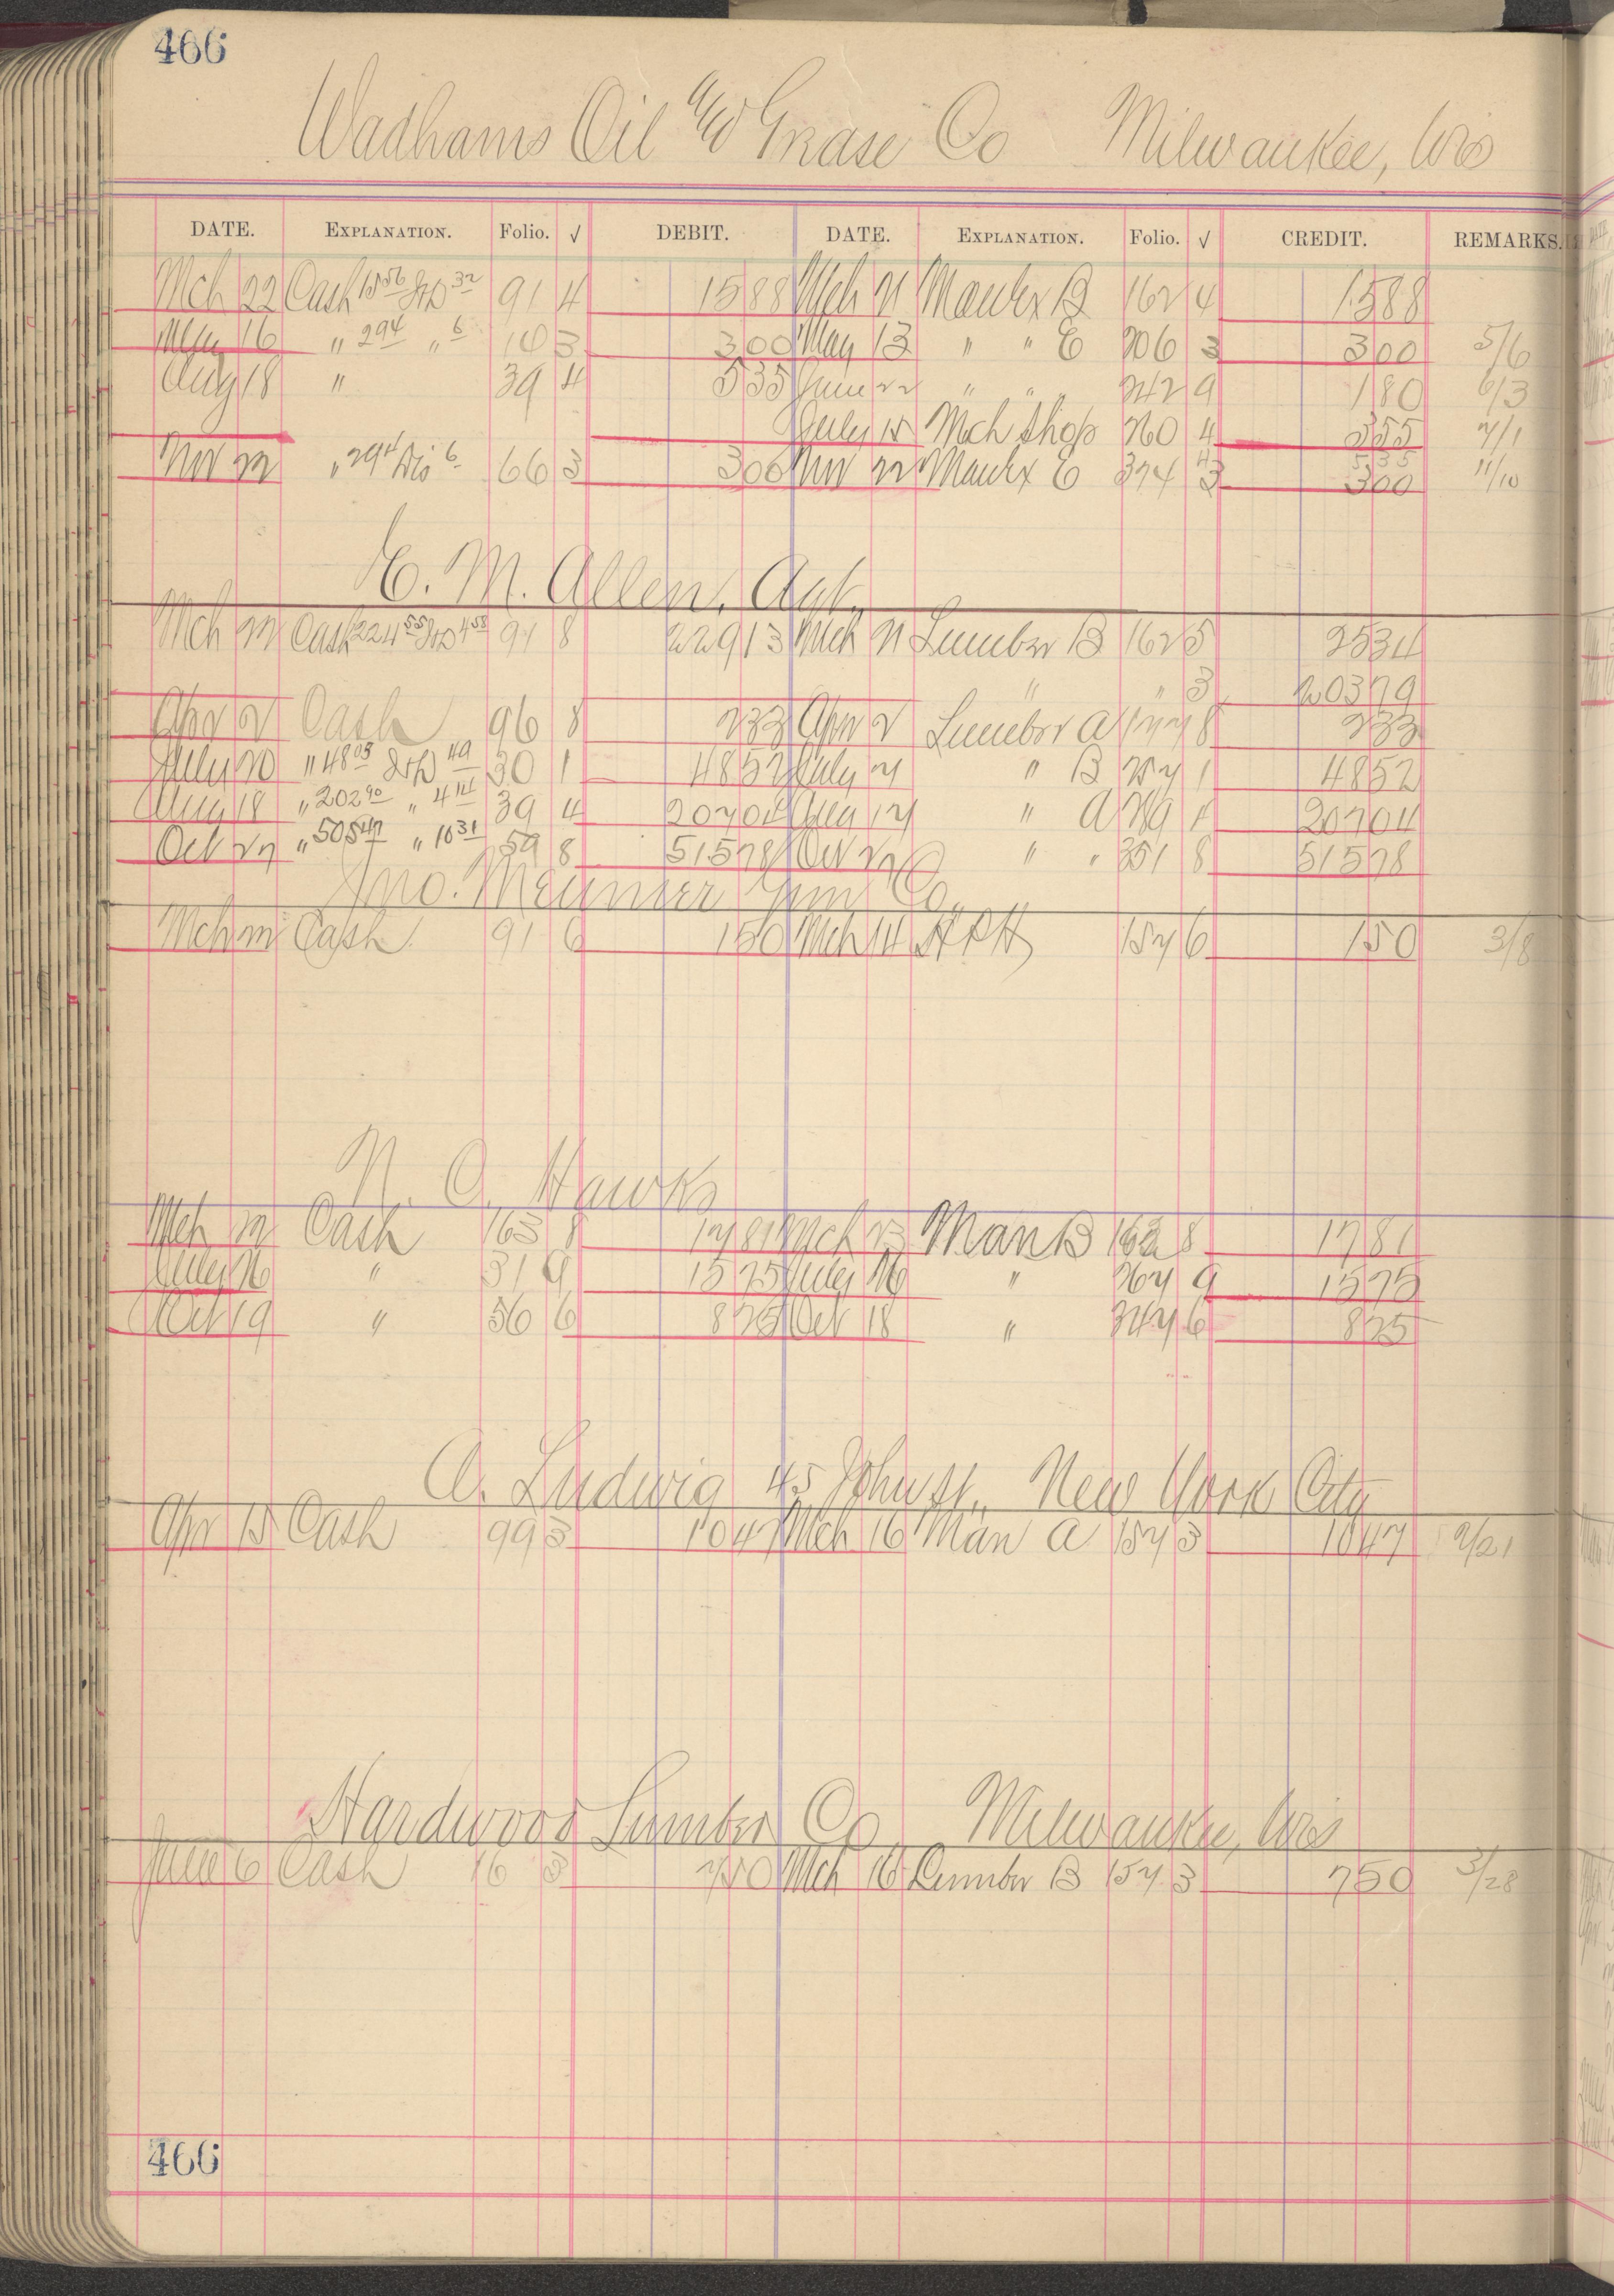 466
Wadhams Oil and Grease Co Milwaukee, Wis
DATE. EXPLANATION. Folio. √ DEBIT. DATE. EXPLANATION. Folio. √ CREDIT. REMARKS.
Mch 22 Cash 15 56 32 91 4 15 88 Mch 21 B 162 4 15 88
May 16 " 294 " 6 10 3 3 00 May 13 " " E 206 3 3 00 5/6
Aug 18 " 39 4 5 35 June 22 " " 242 9 1 80 6/3
July 15 Mch Shop 260 4 3 55 7/1
5 35
Nov 22 " 294 Dis 6 66 3 3 00 Nov 22 E 374 3 3 00 11/10
E. M. Allen, Agt.
Mch 22 Cash 224 55 4 58 91 8 229 13 Mch 21 Lumber B 162 5 25 34
" " 3 203 79
Apr 2 Cash 96 8 2 33 Apr 2 Lumber A 177 8 2 33
July 20 " 48 03 49 30 1 48 52 July " B 257 1 48 52
Aug 18 " 202 90 " 4 14 39 4 207 04 Aug 17 " A 4 207 04
Oct 27 " 505 47 " 10 31 59 8 515 78 Oct 27 " " 351 8 515 78
Jno. Meunier Gun Co.
Mch 22 Cash 91 6 1 50 Mch 14 157 6 1 50 3/8
N. O. Hawks
Mch 22 Cash 163 8 17 81 Mch 23 Man B 163 8 17 81
July 26 " 31 9 15 75 July 26 " 267 9 15 75
Oct 19 " 56 6 8 25 Oct 18 " 347 6 8 25
A. Ludwig 45 John St., New York City
Apr 15 Cash 99 3 10 47 Mch 16 Man A 157 3 10 47 2/21
Hardwood Lumber Co Milwaukee, Wis
June 6 Cash 16 3 7 50 Mch 16 Lumber B 157 3 7 50 3/28
466